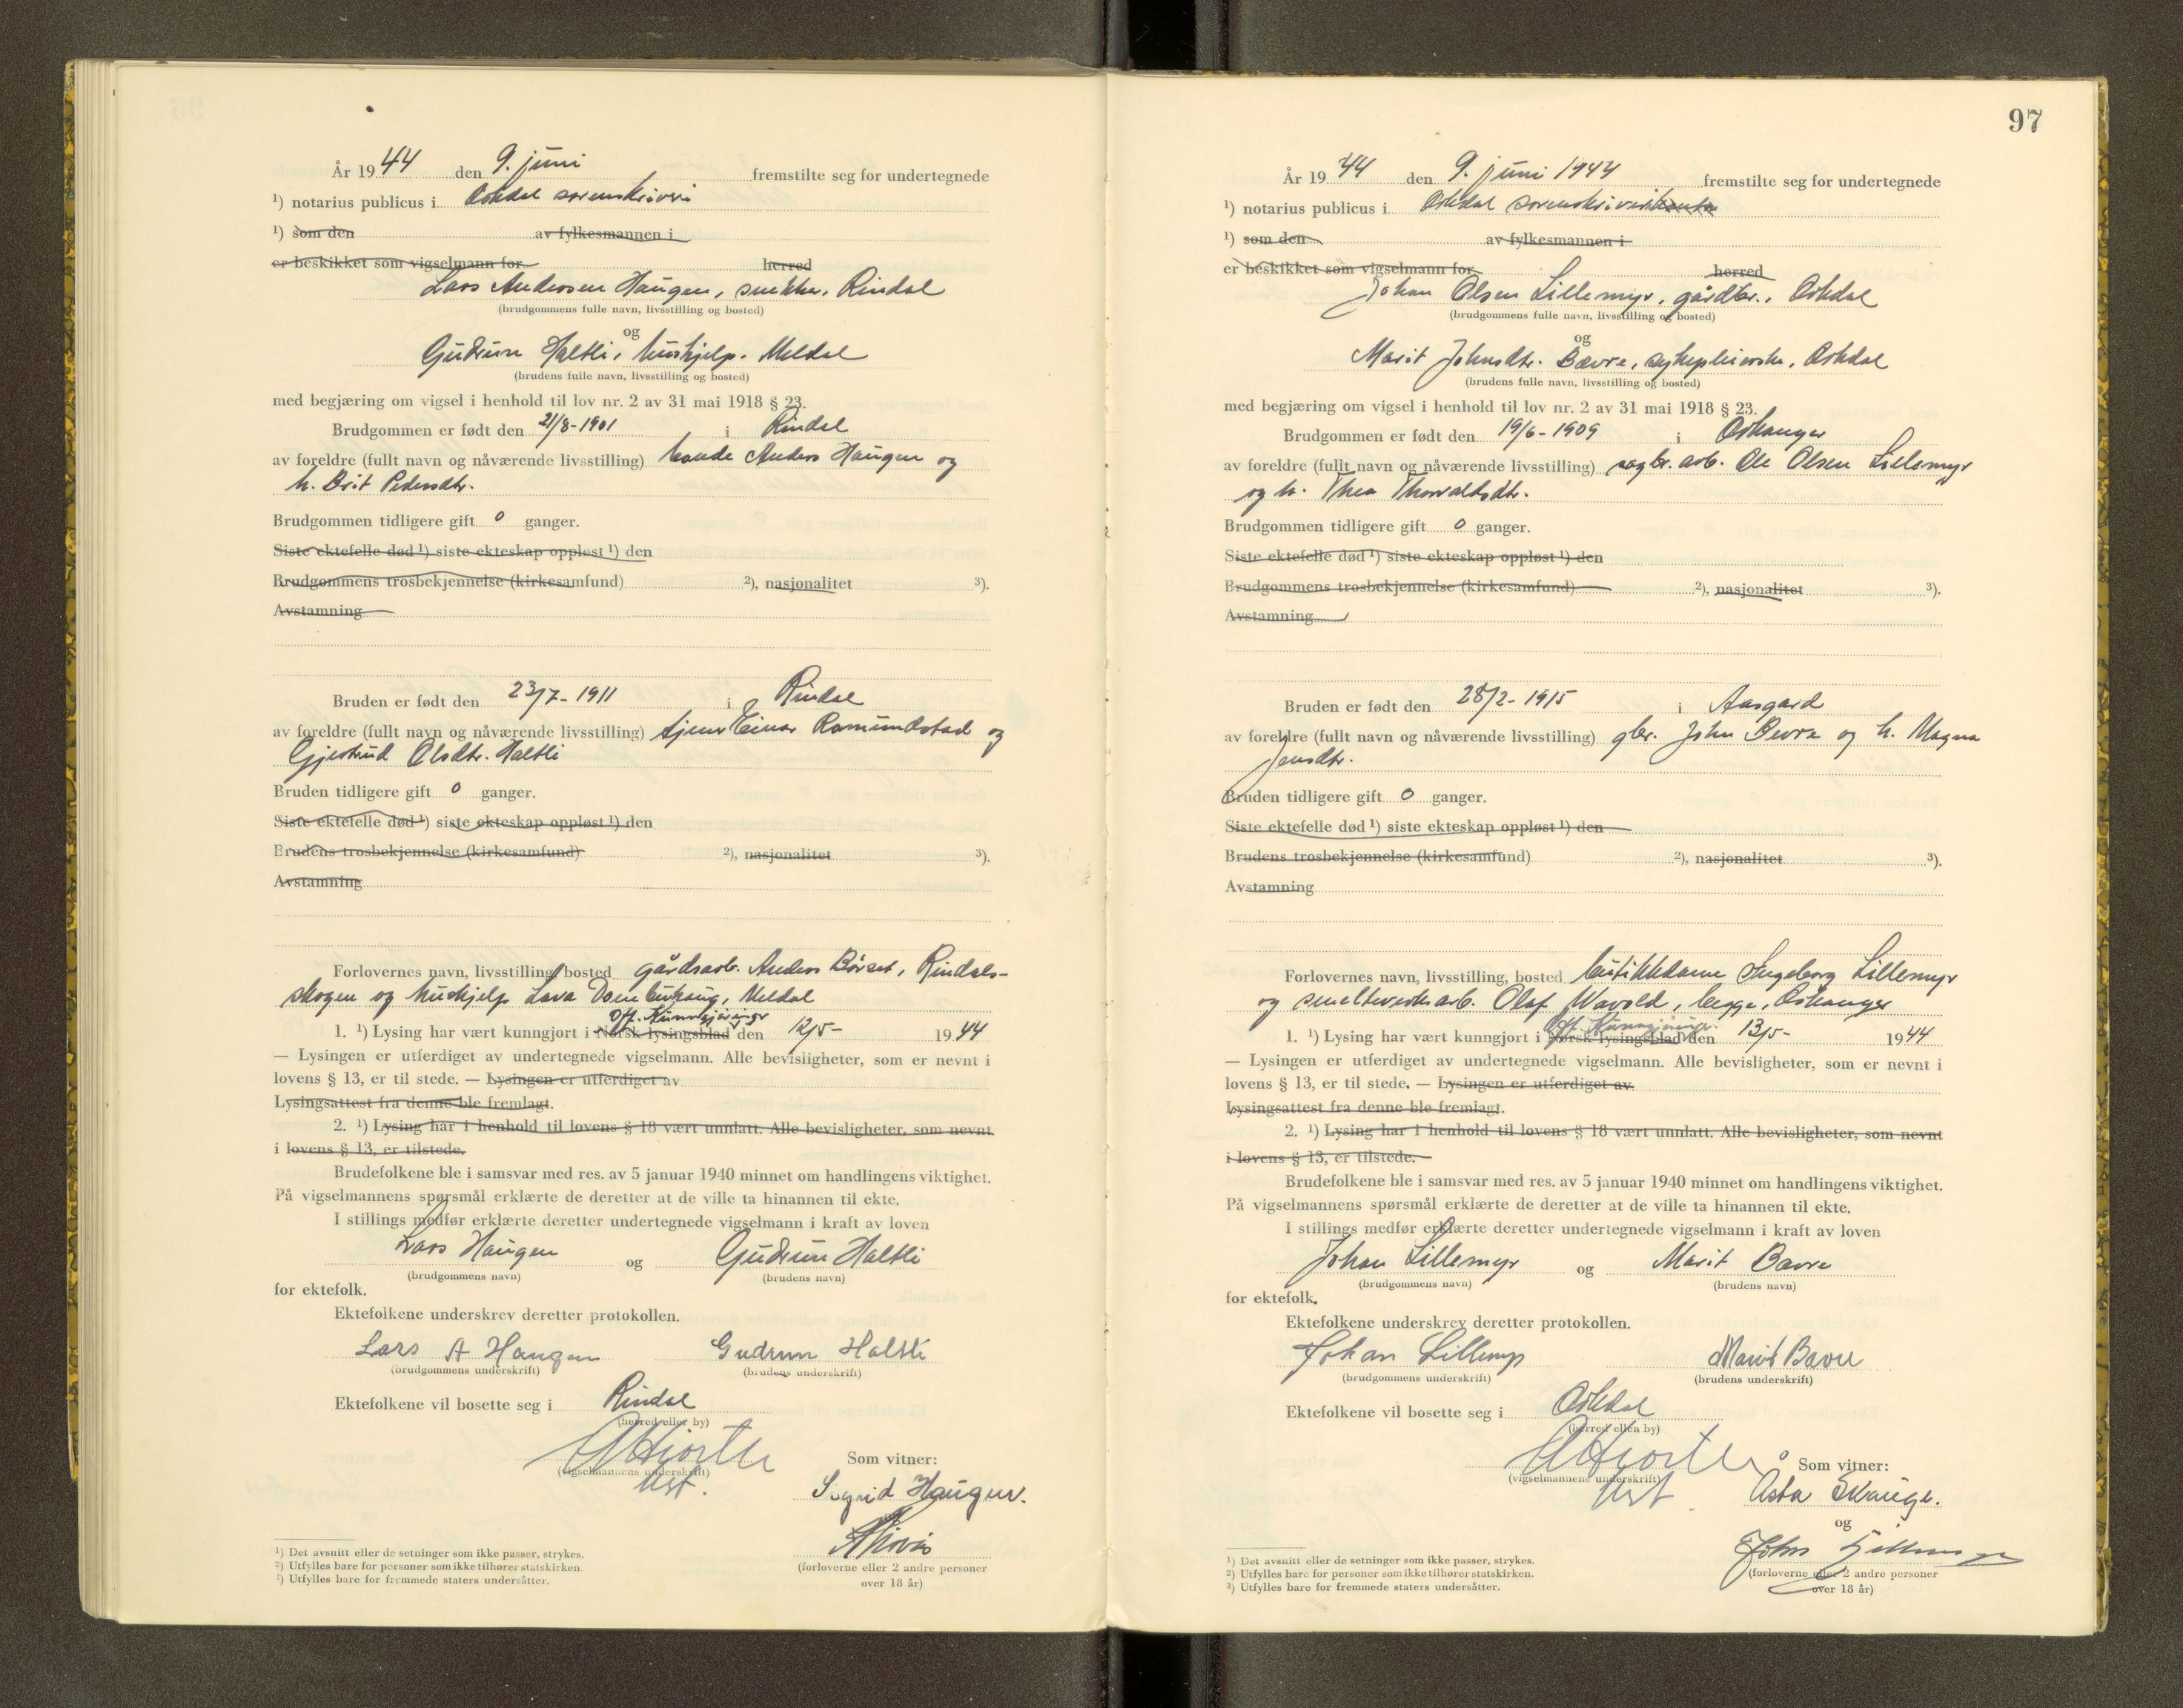 År 1944 den 9. juni fremstilte seg for undertegnede
¹) notarius publicus i Orkdal sorenskriveri
¹) som den av fylkesmannen i
er beskikket som vigselmann for herred
Lars Andersen Haugen, snekker, Rindal
(brudgommens fulle navn, livsstilling og bosted)
og
Gudrun Haltli, hushjelp. Meldal
(brudens fulle navn, livsstilling og bosted)
med begjæring om vigsel i henhold til lov nr. 2 av 31 mai 1918 § 23.
Brudgommen er født den 21/8-1901 i Rindal
av foreldre (fullt navn og nåværende livsstilling) bonde Anders Haugen og
h. Brit Pedersdtr.
Brudgommen tidligere gift 0 ganger.
Siste ektefelle død ¹) siste ekteskap oppløst ¹) den
Brudgommens trosbekjennelse (kirkesamfund) ²), nasjonalitet ³).
Avstamning
Bruden er født den 23/7-1911 i Rindal
av foreldre (fullt navn og nåværende livsstilling) Einar Romundstad og
Gjertrud Olsdtr. Haltli
Bruden tidligere gift 0 ganger.
Siste ektefelle død ¹) siste ekteskap oppløst ¹) den
Brudens trosbekjennelse (kirkesamfund) ²), nasjonalitet ³).
Avstamning
Forlovernes navn, livsstilling, bosted gårdsarb. Anders Børset, Rindals-
skogen og hushjelp Lava Meldal
Off. Kunngjøringer
1. ¹) Lysing har vært kunngjort i Norsk lysingsblad den 12/5- 1944
— Lysingen er utferdiget av undertegnede vigselmann. Alle bevisligheter, som er nevnt i
lovens § 13, er til stede. — Lysingen er utferdiget av
Lysingsattest fra denne ble fremlagt.
2. ¹) Lysing har i henhold til lovens § 18 vært unnlatt. Alle bevisligheter, som nevnt
i lovens § 13, er tilstede.
Brudefolkene ble i samsvar med res. av 5 januar 1940 minnet om handlingens viktighet.
På vigselmannens spørsmål erklærte de deretter at de ville ta hinannen til ekte.
I stillings medfør erklærte deretter undertegnede vigselmann i kraft av loven
Lars Haugen og Gudrun Haltli
(brudgommens navn) (brudens navn)
for ektefolk.
Ektefolkene underskrev deretter protokollen.
Lars A Haugen Gudrun Haltli
(brudgommens underskrift) (brudens underskrift)
Ektefolkene vil bosette seg i Rindal
(herred eller by)
AHjorth
(vigselmannens underskrift)
Som vitner:
Sigrid Haugen.
og
(forloverne eller 2 andre personer
over 18 år)
¹) Det avsnitt eller de setninger som ikke passer, strykes.
²) Utfylles bare for personer som ikke tilhører statskirken.
³) Utfylles bare for fremmede staters undersåtter.
97
År 1944 den 9. juni 1944 fremstilte seg for undertegnede
¹) notarius publicus i Orkdal sorenskriverikontor
¹) som den av fylkesmannen i
er beskikket som vigselmann for herred
Johan Olsen Lillemyr, gårdbr., Orkdal
(brudgommens fulle navn, livsstilling og bosted)
og
Marit Johnsdtr. Bævre, sykepleierske, Orkdal
(brudens fulle navn, livsstilling og bosted)
med begjæring om vigsel i henhold til lov nr. 2 av 31 mai 1918 § 23.
Brudgommen er født den 19/6-1909 i Orkanger
av foreldre (fullt navn og nåværende livsstilling) sagbr. arb. Ole Olsen Lillemyr
og h. Thea Thorvaldsdtr.
Brudgommen tidligere gift 0 ganger.
Siste ektefelle død ¹) siste ekteskap oppløst ¹) den
Brudgommens trosbekjennelse (kirkesamfund) ²), nasjonalitet ³).
Avstamning
Bruden er født den 28/2-1915 i Aasgard
av foreldre (fullt navn og nåværende livsstilling) gbr. John Bævre og h. Magna
Jensdtr.
Bruden tidligere gift 0 ganger.
Siste ektefelle død ¹) siste ekteskap oppløst ¹) den
Brudens trosbekjennelse (kirkesamfund) ²), nasjonalitet ³).
Avstamning
Forlovernes navn, livsstilling, bosted butikkdame Ingeborg Lillemyr
og smelteverksarb. Olaf Wavold, begge, Orkanger
Off. Kunngjøringer.
1. ¹) Lysing har vært kunngjort i Norsk lysingsblad den 13/5- 1944
— Lysingen er utferdiget av undertegnede vigselmann. Alle bevisligheter, som er nevnt i
lovens § 13, er til stede. — Lysingen er utferdiget av
Lysingsattest fra denne ble fremlagt.
2. ¹) Lysing har i henhold til lovens § 18 vært unnlatt. Alle bevisligheter, som nevnt
i lovens § 13, er tilstede.
Brudefolkene ble i samsvar med res. av 5 januar 1940 minnet om handlingens viktighet.
På vigselmannens spørsmål erklærte de deretter at de ville ta hinannen til ekte.
I stillings medfør erklærte deretter undertegnede vigselmann i kraft av loven
Johan Lillemyr og Marit Bævre
(brudgommens navn) (brudens navn)
for ektefolk.
Ektefolkene underskrev deretter protokollen.
Johan Lillemyr Marit Bævre
(brudgommens underskrift) (brudens underskrift)
Ektefolkene vil bosette seg i Orkdal
(herred eller by)
AHjorth
(vigselmannens underskrift)
Som vitner:
Åsta Skauge.
og
(forloverne eller 2 andre personer
over 18 år)
¹) Det avsnitt eller de setninger som ikke passer, strykes.
²) Utfylles bare for personer som ikke tilhører statskirken.
³) Utfylles bare for fremmede staters undersåtter.